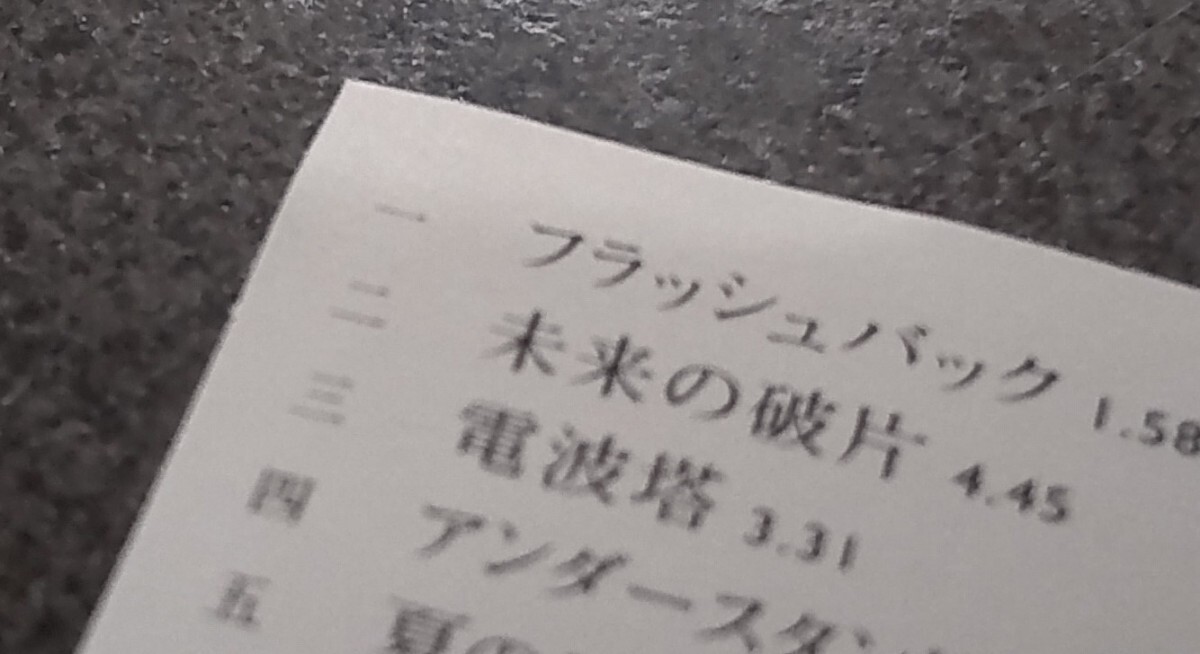 一 フラッシュバック 1.58
二 未来の破片 4.45
三 電波塔 3.31
四 アンダースタン
五 夏の